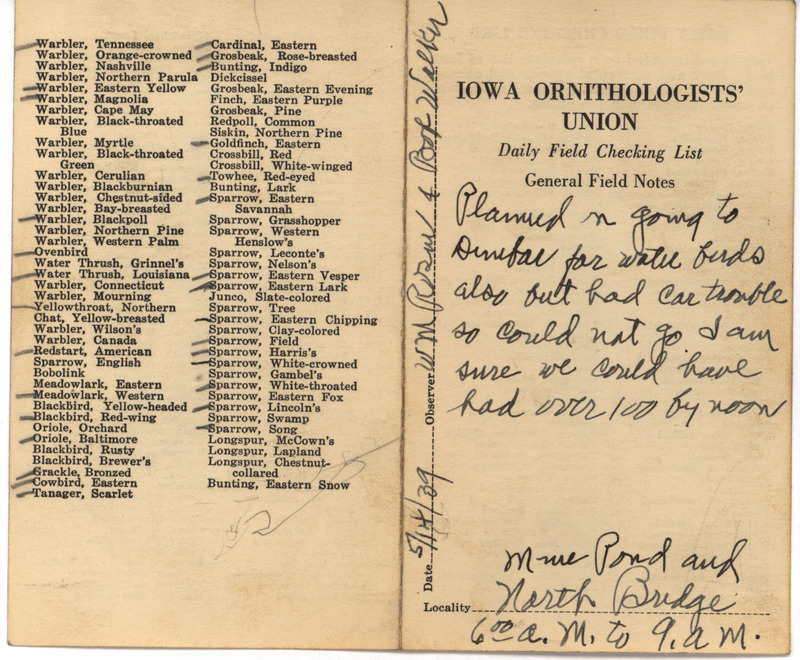 Warbler, Tennessee
Warbler, Orange-crowned
Warbler, Nashville
Warbler, Northern Parula
Warbler, Eastern Yellow
Warbler, Magnolia
Warbler, Cape May
Warbler, Black-throated
Blue
Warbler, Myrtle
Warbler, Black-throated
Green
Warbler, Cerulian
Warbler, Blackburnian
Warbler, Chestnut-sided
Warbler, Bay-breasted
Warbler, Blackpoll
Warbler, Northern Pine
Warbler, Western Palm
Ovenbird
Water Thrush, Grinnel's
Water Thrush, Louisiana
Warbler, Connecticut
Warbler, Mourning
Yellowthroat, Northern
Chat, Yellow-breasted
Warbler, Wilson's
Warbler, Canada
Redstart, American
Sparrow, English
Bobolink
Meadowlark, Eastern
Meadowlark, Western
Blackbird, Yellow-headed
Blackbird, Red-wing
Oriole, Orchard
Oriole, Baltimore
Blackbird, Rusty
Blackbird, Brewer's
Grackle, Bronzed
Cowbird, Eastern
Tanager, Scarlet
Cardinal, Eastern
Grosbeak, Rose-breasted
Bunting, Indigo
Dickcissel
Grosbeak, Eastern Evening
Finch, Eastern Purple
Grosbeak, Pine
Redpoll, Common
Siskin, Northern Pine
Goldfinch, Eastern
Crossbill, Red
Crossbill, White-winged
Towhee, Red-eyed
Bunting, Lark
Sparrow, Eastern
Savannah
Sparrow, Grasshopper
Sparrow, Western
Henslow's
Sparrow, Leconte's
Sparrow, Nelson's
Sparrow, Eastern Vesper
Sparrow, Eastern Lark
Junco, Slate-colored
Sparrow, Tree
Sparrow, Eastern Chipping
Sparrow, Clay-colored
Sparrow, Field
Sparrow, Harris's
Sparrow, White-crowned
Sparrow, Gambel's
Sparrow, White-throated
Sparrow, Eastern Fox
Sparrow, Lincoln's
Sparrow, Swamp
Sparrow, Song
Longspur, McCown's
Longspur, Lapland
Longspur, Chestnut-
collared
Bunting, Eastern Snow
Date 5/14/39 Observer Wm Rosene & Bob Walker
IOWA ORNITHOLOGISTS'
UNION
Daily Field Checking List
General Field Notes
Planned on going to
Dunbar for water birds
also but had car trouble
so could not go I am
sure we could have
had over 100 by noon
Mine Pond and
Locality North Bridge
6 00 a. M. to 9. a M.